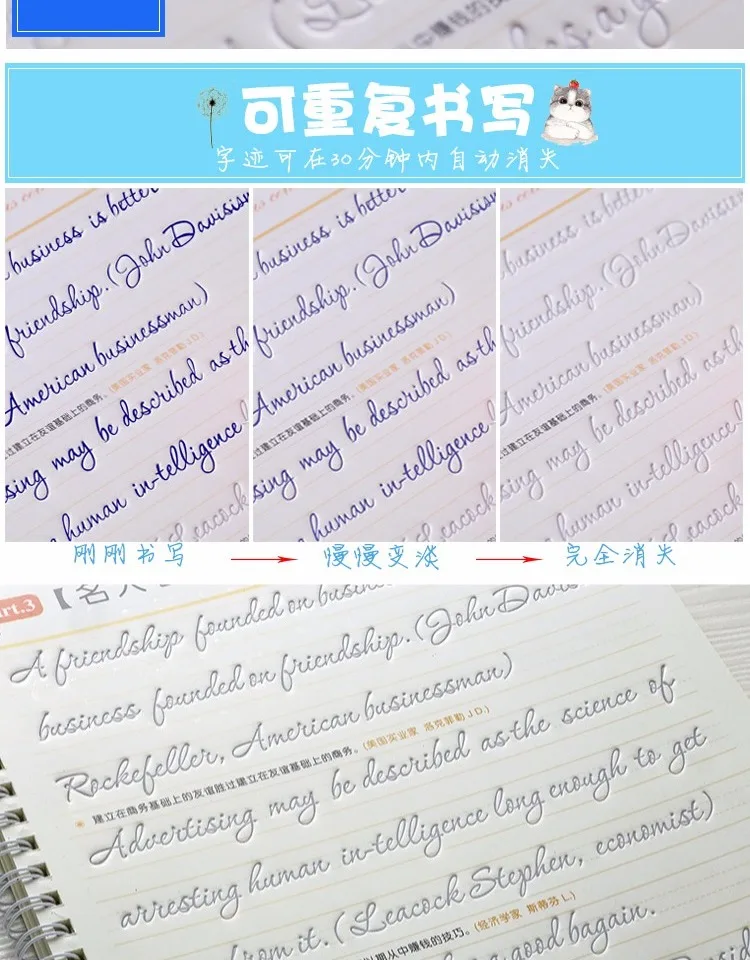 中赚钱的技
可重复书写
字迹可在30分钟内自动消失
business is better
friendship. (John Davisis
American businessman)
(美国实业家 洛克菲勒 J D.)
过建立在友谊基础上的商务。
sing may be described as th
human in-telligence l
Leacock
business is better
friendship. (John Davisison
American businessman)
(美国实业家 洛克菲勒 J D.)
过建立在友谊基础上的商务。
sing may be described as th
human in-telligence l
Leacock
business is better
friendship. (John Davisison
American businessman)
(美国实业家 洛克菲勒 J D.)
过建立在友谊基础上的商务。
sing may be described as th
human in-telligence l
Leacock
刚刚书写
慢慢变淡
完全消失
rt.3
【名人
A friendship founded on busine
business founded on friendship. (John Davis
Rockefeller, American businessman)
建立在商务基础上的友谊胜过建立在友谊基础上的商务。(美国实业家 洛克菲勒 J D.)
Advertising may be described as the science of
arresting human in-telligence long enough to get
from it. (Leacock Stephen, economist)
以期从中赚钱的技巧。(经济学家 斯蒂芬 L.)
a good bagain.